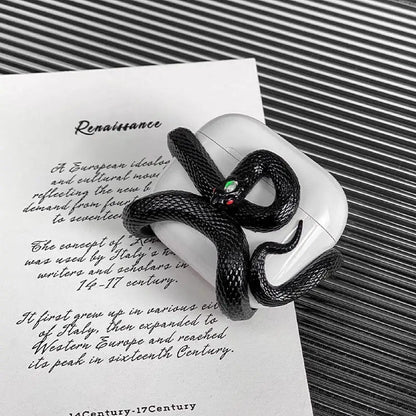 Renaissance
A European ideolo
and cultural mov
reflecting the new b
demand from fourt
to sevente
The concept of
was used by Italy's h
writers and scholars in
14-17 century.
It first grew up in various cit
of Italy, then expanded to
Western Europe and reached
its peak in sixteenth Century.
14Century-17Century